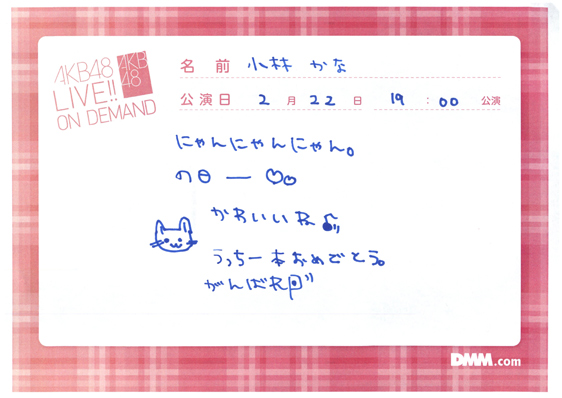 AKB48
LIVE!!
ON DEMAND
AKB
48
名前 小林 かな
公演日 2月22日 19:00公演
にゃんにゃんにゃん。
の日ー♡♡
かわいいね♪
うっちー本おめでとう。
がんばれ
DMM.com